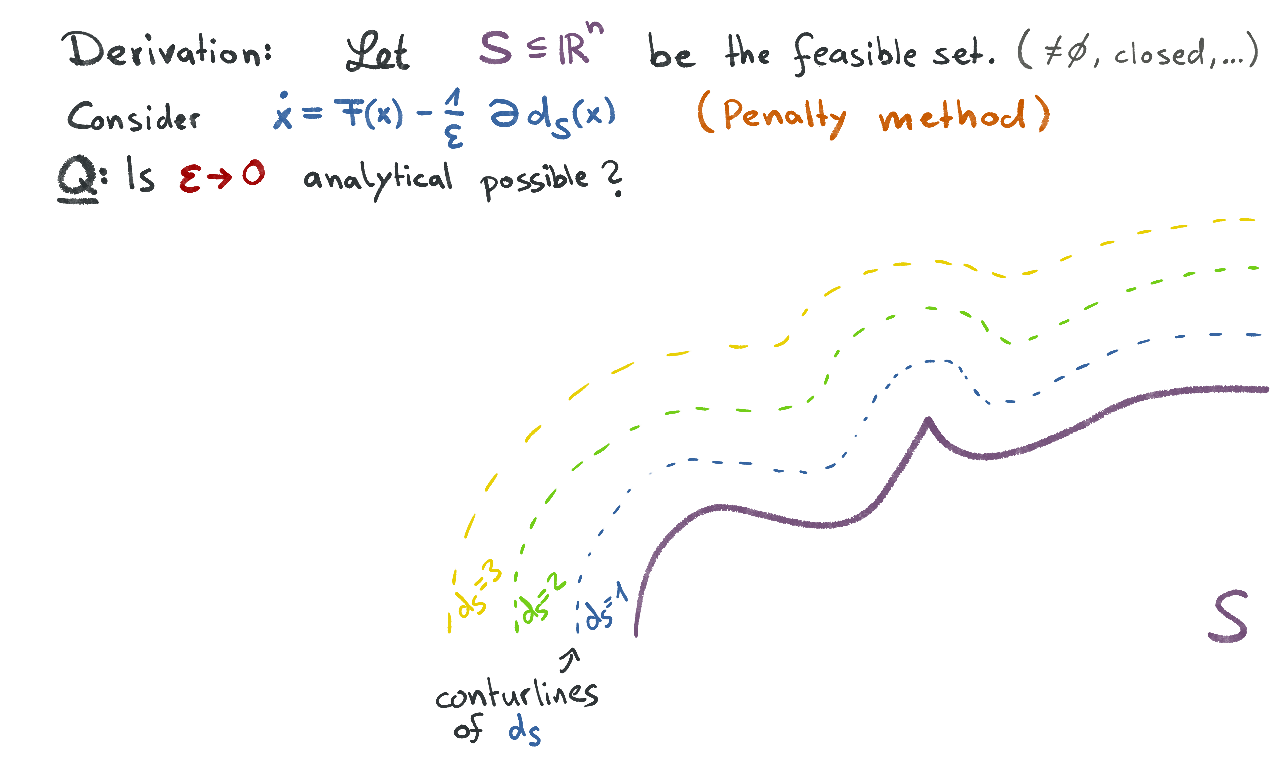 Derivation: Let S ⊆ ℝⁿ be the feasible set. (≠∅, closed,...)
Consider ẋ = F(x) - 1/ε ∂ds(x) (Penalty method)
Q: Is ε→0 analytical possible?
ds=3
ds=2
ds=1
S
conturlines
of ds